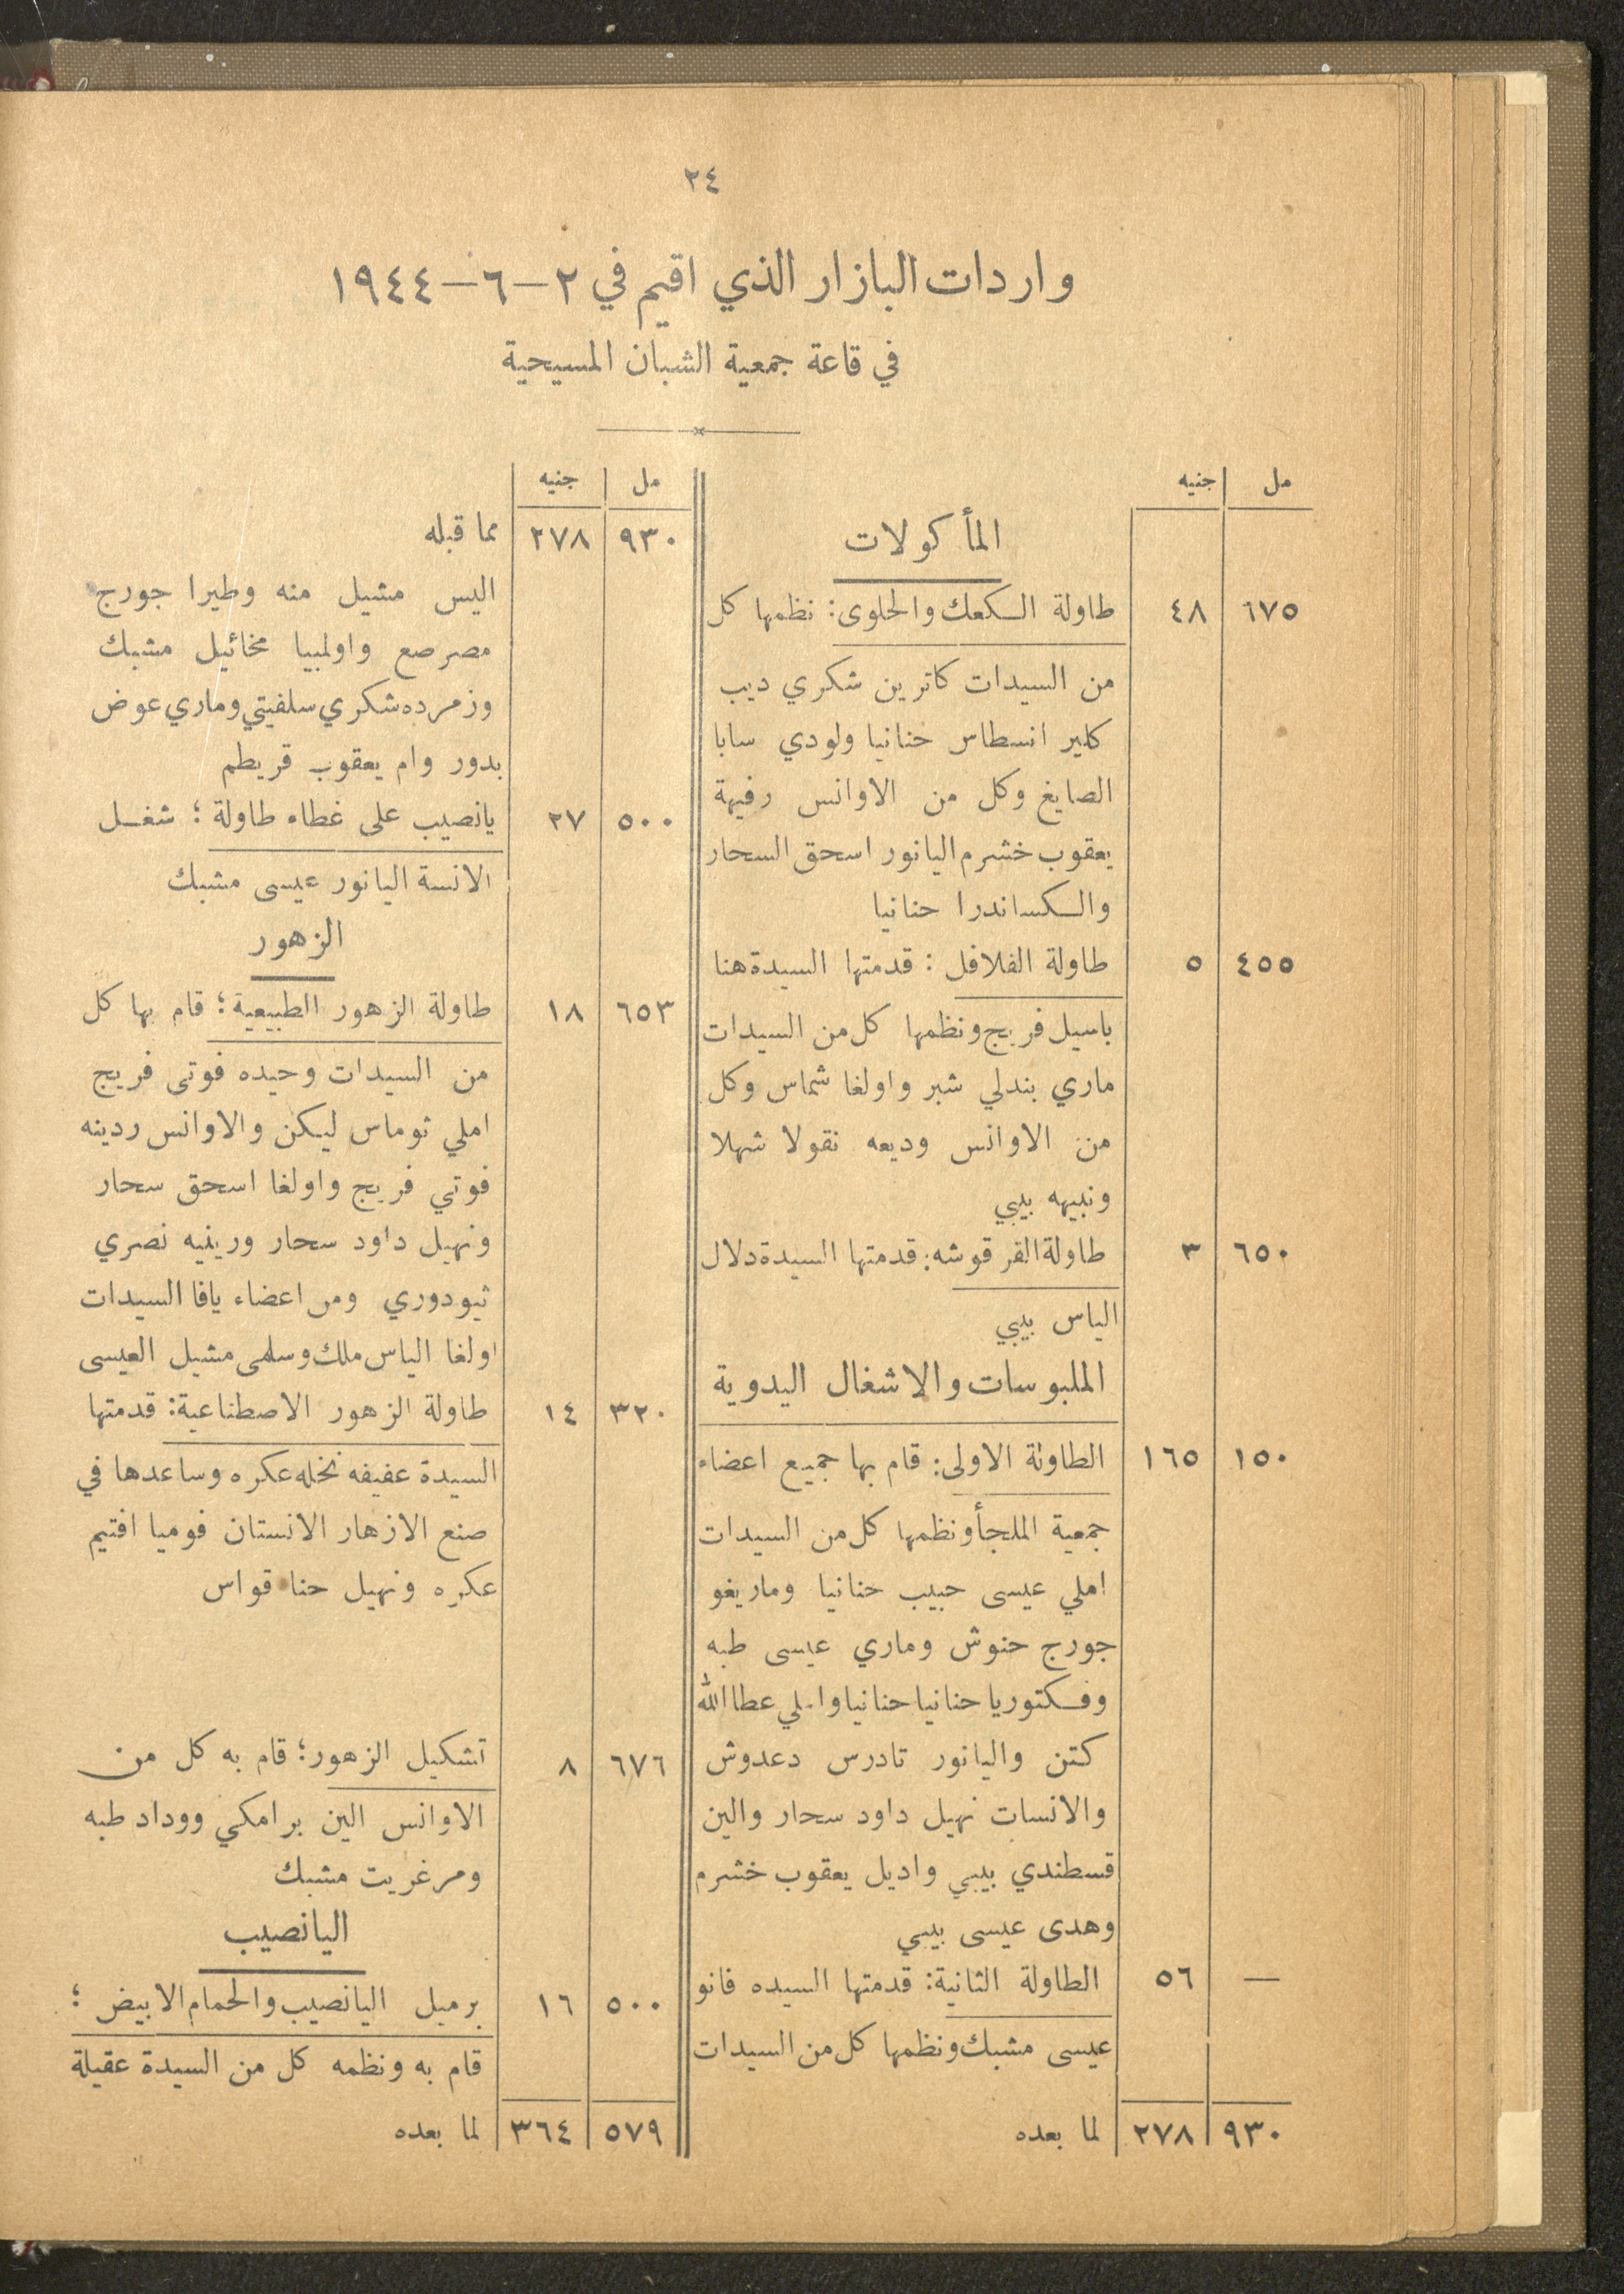 ٢٤
واردات البازار الذي اقيم في ٢-٦-١٩٤٤
في قاعة جمعية الشبان المسيحية
مل جنيه
المأكولات
٦٧٥ ٤٨ طاولة الكعك والحلوى: نظمها كل
من السيدات كاترين شكري ديب
كلير انسطاس حنانيا ولودي سابا
الصايغ وكل من الاوانس رفيهة
يعقوب خشرم اليانور اسحق السحار
والكساندرا حنانيا
٤٥٥ ٥ طاولة الفلافل: قدمتها السيدة هنا
باسيل فريج ونظمها كل من السيدات
ماري بندلي شبر واولغا شماس وكل
من الاوانس وديعه نقولا شهلا
ونبيهه بيبي
٦٥٠ ٣ طاولة القرقوشه: قدمتها السيدة دلال
الياس بيبي
الملبوسات والاشغال اليدوية
١٥٠ ١٦٥ الطاولة الاولى: قام بها جميع اعضاء
جمعية الملجأ ونظمها كل من السيدات
املي عيسى حبيب حنانيا وماريغو
جورج حنوش وماري عيسى طبه
وفكتوريا حنانيا حنانيا واملي عطا الله
كتن واليانور تادرس دعدوش
والانسات نهيل داود سحار والين
قسطندي بيبي واديل يعقوب خشرم
وهدى عيسى بيبي
— ٥٦ الطاولة الثانية: قدمتها السيده فانو
عيسى مشبك ونظمها كل من السيدات
٩٣٠ ٢٧٨ لما بعده
مل جنيه
٩٣٠ ٢٧٨ مما قبله
اليس مشيل منه وطيرا جورج
مصرصع واولمبيا مخائيل مشبك
وزمرده شكري سلفيتي وماري عوض
بدور وام يعقوب قريطم
٥٠٠ ٢٧ يانصيب على غطاء طاولة؛ شغل
الانسة اليانور عيسى مشبك
الزهور
٦٥٣ ١٨ طاولة الزهور الطبيعية؛ قام بها كل
من السيدات وحيده فوتى فريج
املي توماس ليكن والاوانس ردينه
فوتي فريج واولغا اسحق سحار
ونهيل داود سحار ورينيه نصري
ثيودوري ومن اعضاء يافا السيدات
اولغا الياس ملك وسلمى مشيل العيسى
٣٢٠ ١٤ طاولة الزهور الاصطناعية: قدمتها
السيدة عفيفه نخله عكره وساعدها في
صنع الازهار الانستان فوميا افتيم
عكره ونهيل حنا قواس
٦٧٦ ٨ تشكيل الزهور؛ قام به كل من
الاوانس الين برامكي ووداد طبه
ومرغريت مشبك
اليانصيب
٥٠٠ ١٦ برميل اليانصيب والحمام الابيض؛
قام به ونظمه كل من السيدة عقيلة
٥٧٩ ٣٦٤ لما بعده